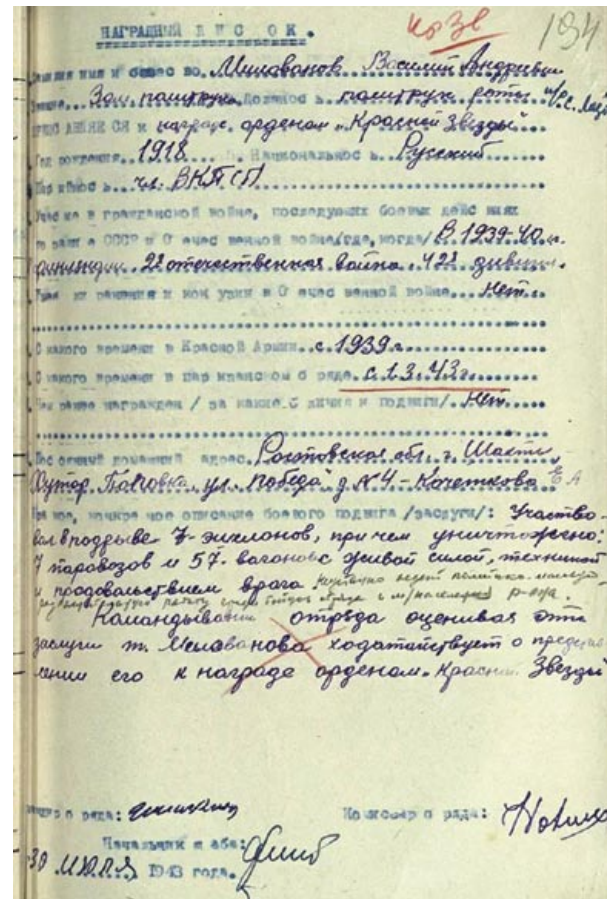 НАГРАДНЫЙ ЛИСТОК.
194
Фамилия имя и отчес во. Милованов Василий Андреевич
Звание. Зам. политрука. Должнос ь. политрук роты
к награде орденом „Красной Звезды"
Год рождения. 1918 Национальнос ь. Русский
чл. ВКП(б)
Учас ие в гражданской войне, последующих боевых дейс виях
по защи е СССР и О ечес венной войне/где, когда/ В 1939-40 г.
Финляндии. 2я отечественная война. 42я дивизи.
ранения и кон узии в О ечес венной войне. Нет.
С какого времени в Красной Армии. с. 1939 г.
С какого времени в пар изанском о ряде. с. 1.3.43 г.
Чем ранее награжден / за какие о личия и подвиги/. Нет
Пос оянный домашний адрес. Ростовская обл. г. Шахты
Хутор Поповка. ул. Победа д. №4 - Кочеткова Е А
конкре ное описание боевого подвига /заслуги/: Участво-
вал в подрыве 7- эшелонов, при чем уничтожено:
7 паровозов и 57- вагонов с живой силой, техникой
и продовольствием врага
Командывание отряда оценивая эти
заслуги т. Милованова ходатайствует о представ
лении его к награде орденом „Красной Звезды"
о ряда:
Комиссар о ряда:
Начальник ш аба:
30 ИЮЛЯ 1943 года.